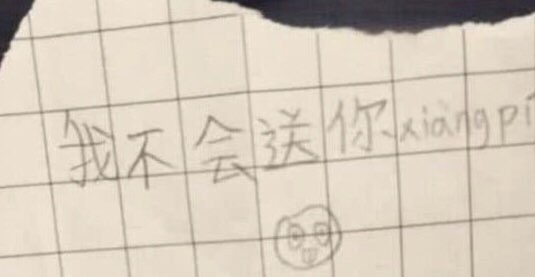 我不会送你xiàngpí